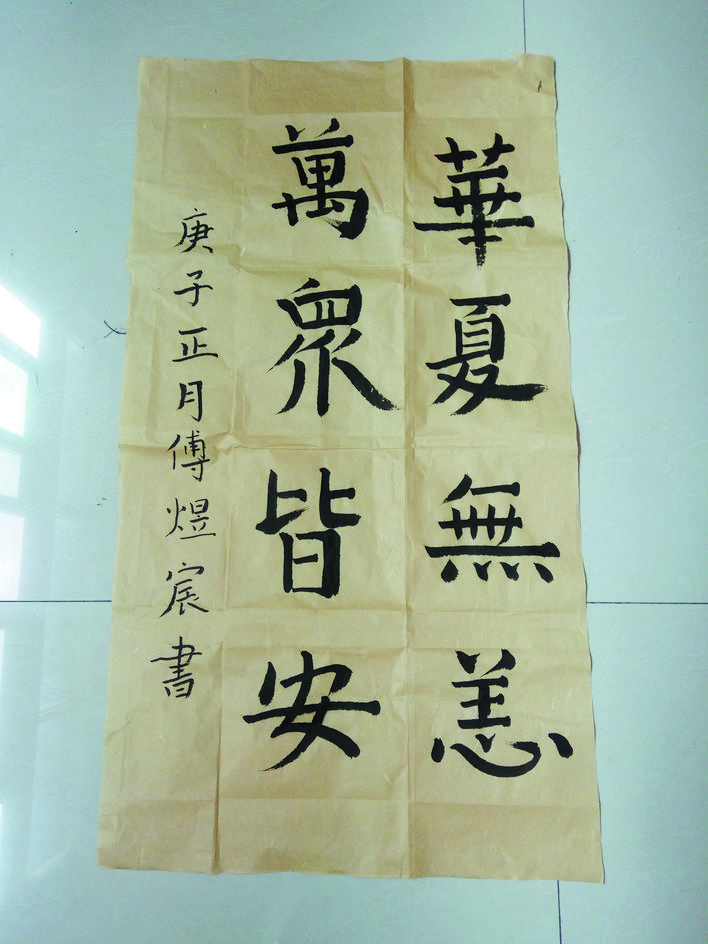 華夏無恙
萬眾皆安
庚子正月傅煜宸書